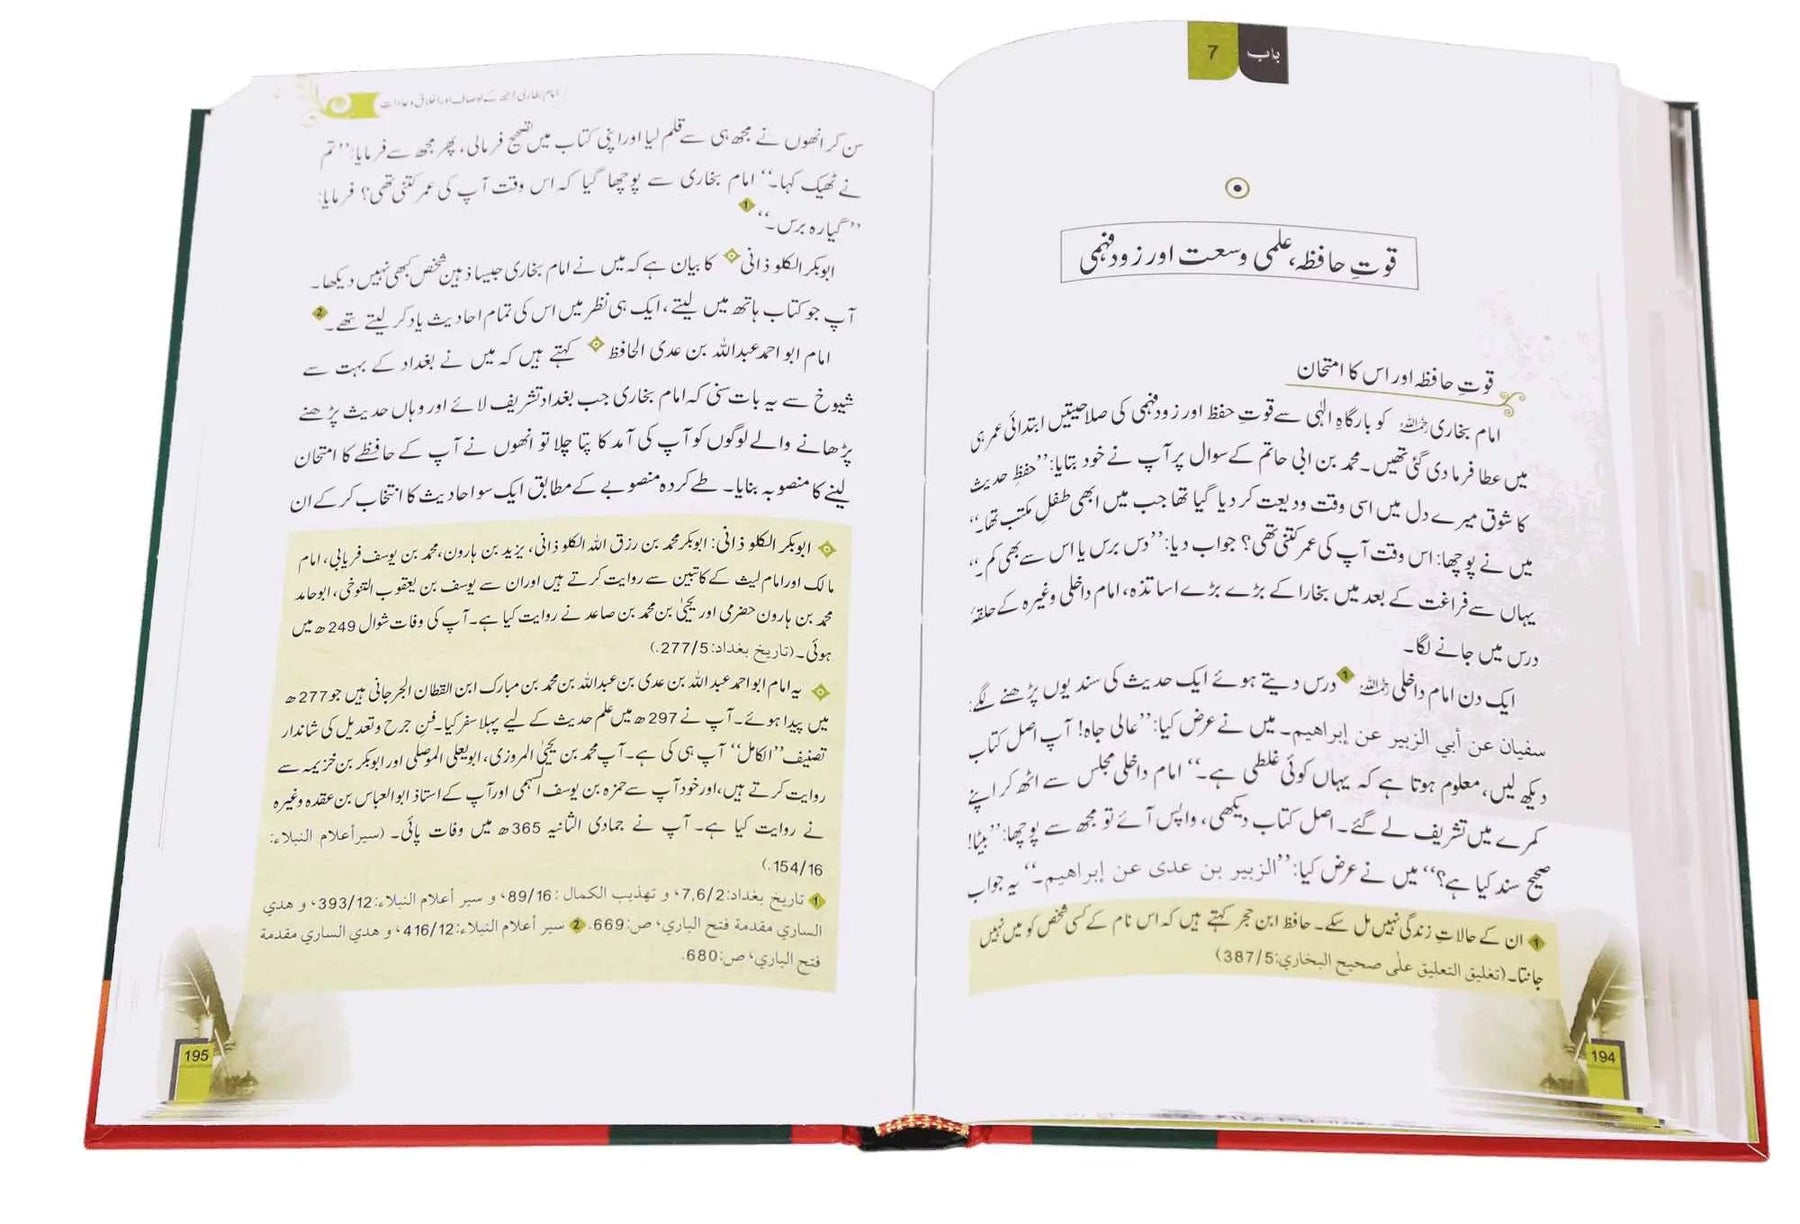 باب 7
قوتِ حافظہ، علمی وسعت اور زود فہمی
قوتِ حافظہ اور اس کا امتحان
امام بخاری رحمہ اللہ کو بارگاہِ الٰہی سے قوتِ حفظ اور زود فہمی کی صلاحیتیں ابتدائی عمر ہی
میں عطا فرما دی گئی تھیں۔ محمد بن ابی حاتم کے سوال پر آپ نے خود بتایا: ’’حفظِ حدیث
کا شوق میرے دل میں اسی وقت ودیعت کر دیا گیا تھا جب میں ابھی طفلِ مکتب تھا۔‘‘
میں نے پوچھا: اس وقت آپ کی عمر کتنی تھی؟ جواب دیا: ’’دس برس یا اس سے بھی کم۔‘‘
یہاں سے فراغت کے بعد میں بخارا کے بڑے بڑے اساتذہ، امام داخلی وغیرہ کے حلقۂ
درس میں جانے لگا۔
ایک دن امام داخلی رحمہ اللہ 1 درس دیتے ہوئے ایک حدیث کی سند یوں پڑھنے لگے:
سفيان عن أبي الزبير عن إبراهيم۔ میں نے عرض کیا: ’’عالی جاہ! آپ اصل کتاب
دیکھ لیں، معلوم ہوتا ہے کہ یہاں کوئی غلطی ہے۔‘‘ امام داخلی مجلس سے اٹھ کر اپنے
کمرے میں تشریف لے گئے۔ اصل کتاب دیکھی، واپس آئے تو مجھ سے پوچھا: ’’بیٹا!
صحیح سند کیا ہے؟‘‘ میں نے عرض کیا: ’’الزبير بن عدى عن إبراهيم۔‘‘ یہ جواب
1 ان کے حالاتِ زندگی نہیں مل سکے۔ حافظ ابن حجر کہتے ہیں کہ اس نام کے کسی شخص کو میں نہیں
جانتا۔ (تغليق التعليق على صحيح البخاري: 387/5)
194
امام بخاری رحمہ اللہ کے اوصاف اور اخلاق و عادات
سن کر انھوں نے مجھ ہی سے قلم لیا اور اپنی کتاب میں تصحیح فرمالی، پھر مجھ سے فرمایا: ’’تم
نے ٹھیک کہا۔‘‘ امام بخاری سے پوچھا گیا کہ اس وقت آپ کی عمر کتنی تھی؟ فرمایا:
’’گیارہ برس۔‘‘ 1
ابوبکر الکلوذانی کا بیان ہے کہ میں نے امام بخاری جیسا ذہین شخص کبھی نہیں دیکھا۔
آپ جو کتاب ہاتھ میں لیتے، ایک ہی نظر میں اس کی تمام احادیث یاد کر لیتے تھے۔ 2
امام ابو احمد عبداللہ بن عدی الحافظ کہتے ہیں کہ میں نے بغداد کے بہت سے
شیوخ سے یہ بات سنی کہ امام بخاری جب بغداد تشریف لائے اور وہاں حدیث پڑھنے
پڑھانے والے لوگوں کو آپ کی آمد کا پتا چلا تو انھوں نے آپ کے حافظے کا امتحان
لینے کا منصوبہ بنایا۔ طے کردہ منصوبے کے مطابق ایک سو احادیث کا انتخاب کر کے ان
ابوبکر الکلوذانی: ابوبکر محمد بن رزق اللہ الکلوذانی، یزید بن ہارون، محمد بن یوسف فریابی، امام
مالک اور امام لیث کے کاتبین سے روایت کرتے ہیں اور ان سے یوسف بن یعقوب التنوخی، ابوحامد
محمد بن ہارون حضرمی اور یحییٰ بن محمد بن صاعد نے روایت کیا ہے۔ آپ کی وفات شوال 249ھ میں
ہوئی۔ (تاریخ بغداد: 277/5.)
یہ امام ابو احمد عبداللہ بن عدی بن عبداللہ بن محمد بن مبارک ابن القطان الجرجانی ہیں جو 277ھ
میں پیدا ہوئے۔ آپ نے 297ھ میں علم حدیث کے لیے پہلا سفر کیا۔ فنِ جرح و تعدیل کی شاندار
تصنیف ’’الکامل‘‘ آپ ہی کی ہے۔ آپ محمد بن یحییٰ المروزی، ابویعلی الموصلی اور ابوبکر بن خزیمہ سے
روایت کرتے ہیں، اور خود آپ سے حمزہ بن یوسف السہمی اور آپ کے استاذ ابوالعباس بن عقدہ وغیرہ
نے روایت کیا ہے۔ آپ نے جمادی الثانیہ 365ھ میں وفات پائی۔ (سير أعلام النبلاء:
154/16.)
1 تاريخ بغداد: 7,6/2، و تهذيب الكمال: 89/16، و سير أعلام النبلاء: 393/12، و هدي
الساري مقدمة فتح الباري، ص: 669. 2 سير أعلام النبلاء: 416/12، و هدي الساري مقدمة
فتح الباري، ص: 680.
195